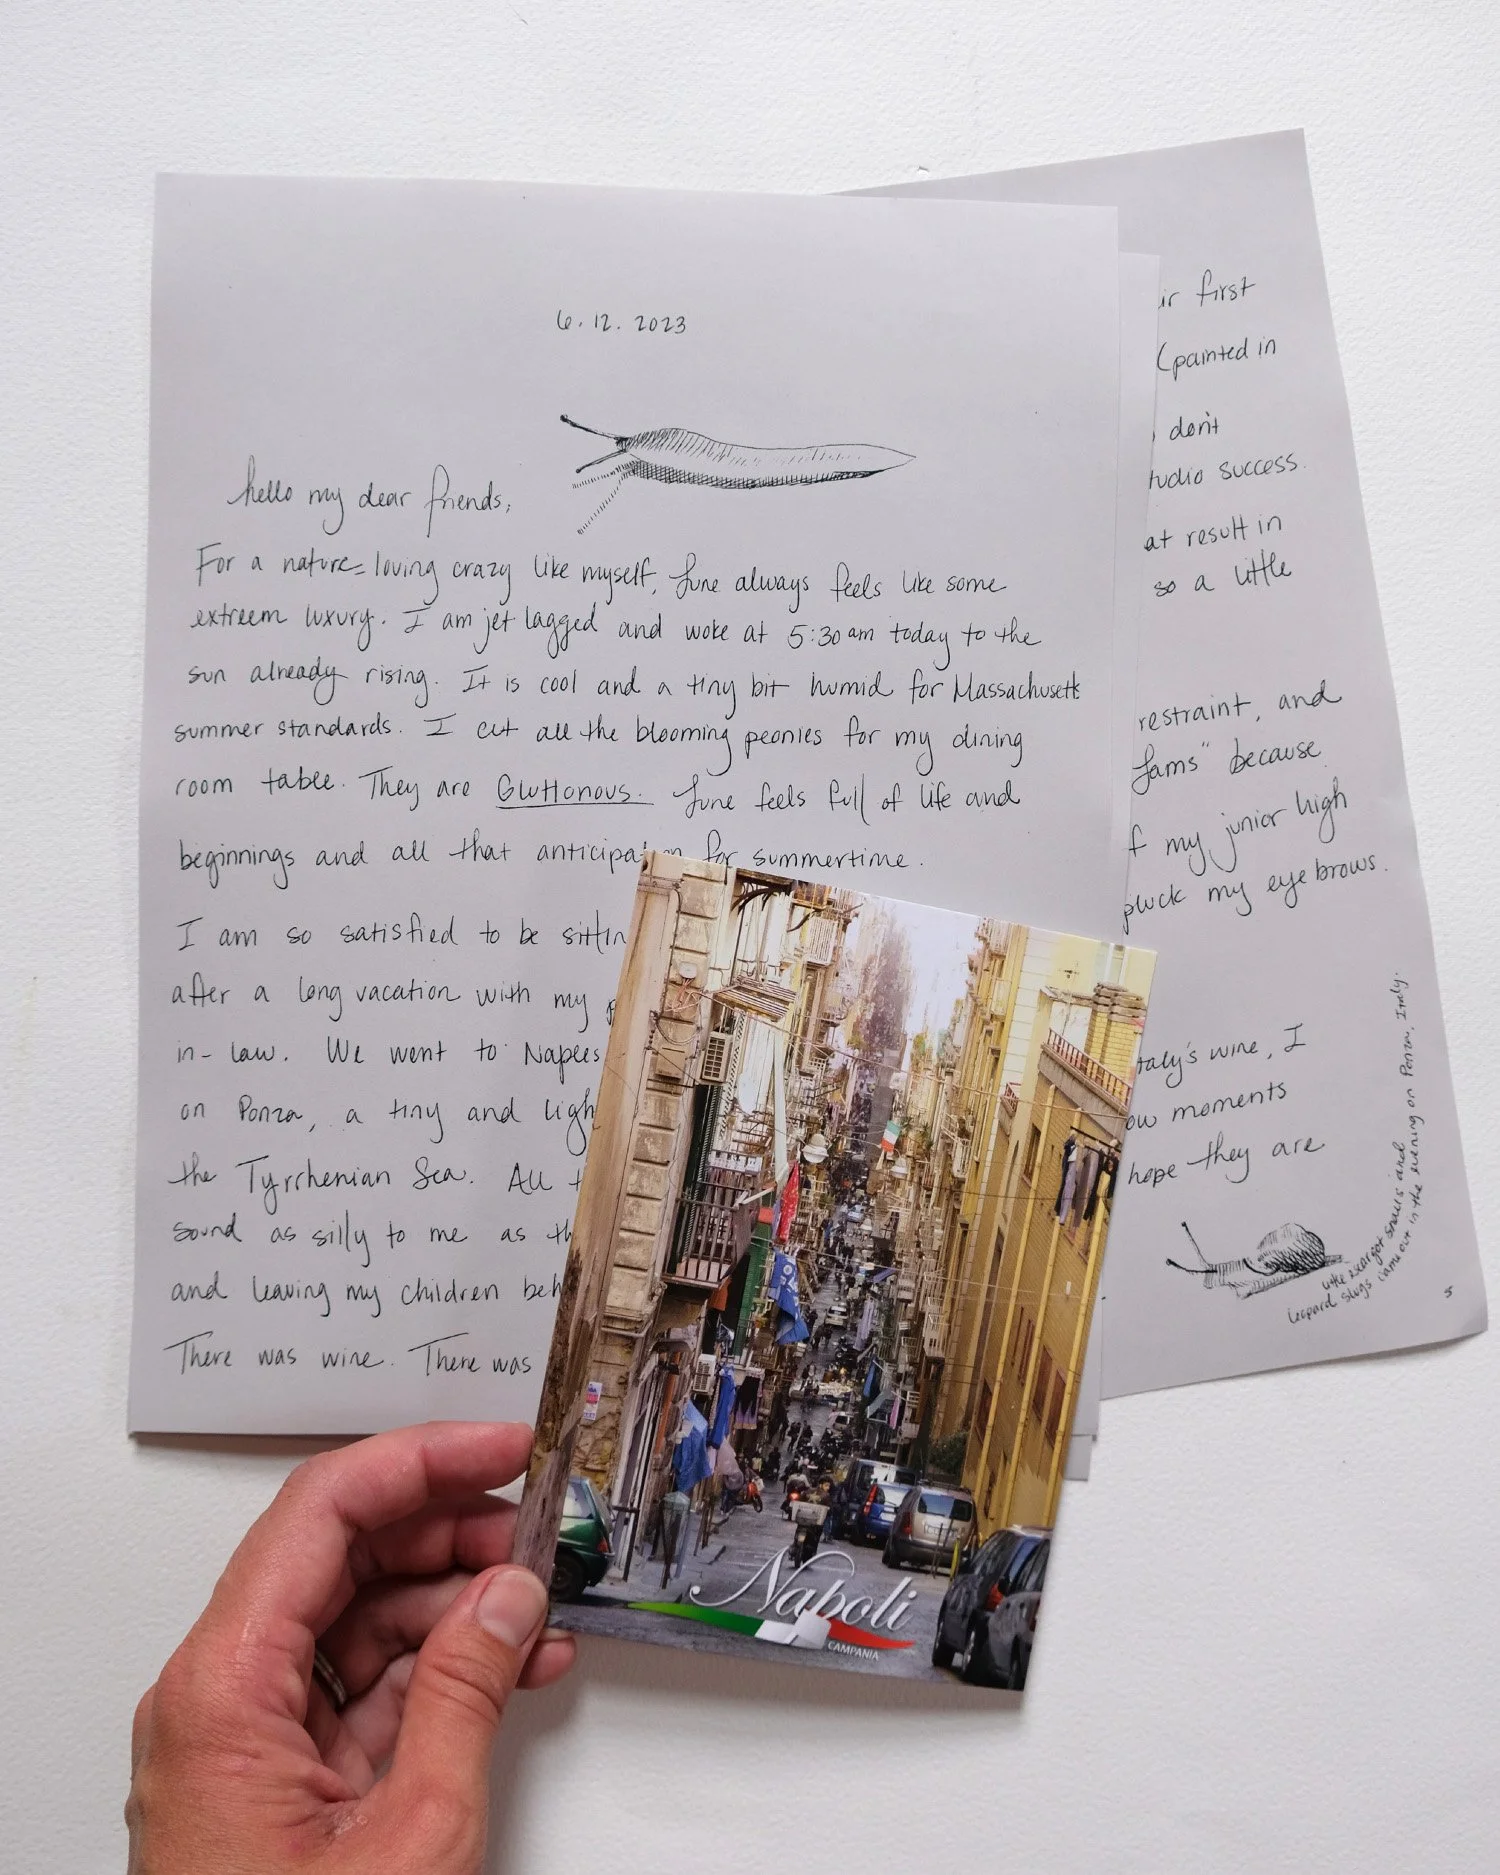 6.12.2023
hello my dear friends,
For a nature-loving crazy like myself, June always feels like some
extreem luxury. I am jet lagged and woke at 5:30am today to the
sun already rising. It is cool and a tiny bit humid for Massachusetts
summer standards. I cut all the blooming peonies for my dining
room table. They are Gluttonous. June feels full of life and
beginnings and all that anticipation for summertime.
I am so satisfied to be sittin
after a long vacation with my
in-law. We went to Naples
on Ponza, a tiny and ligh
the Tyrrhenian Sea. All
sound as silly to me as th
and leaving my children beh
There was wine. There was
ir first
(painted in
don't
tudio success.
at result in
so a little
restraint, and
Jams" because
f my junior high
pluck my eyebrows.
taly's wine, I
ow moments
hope they are
little escargot snails and
leopard slugs came out in the evening on Ponza, Italy.
5
Napoli
CAMPANIA